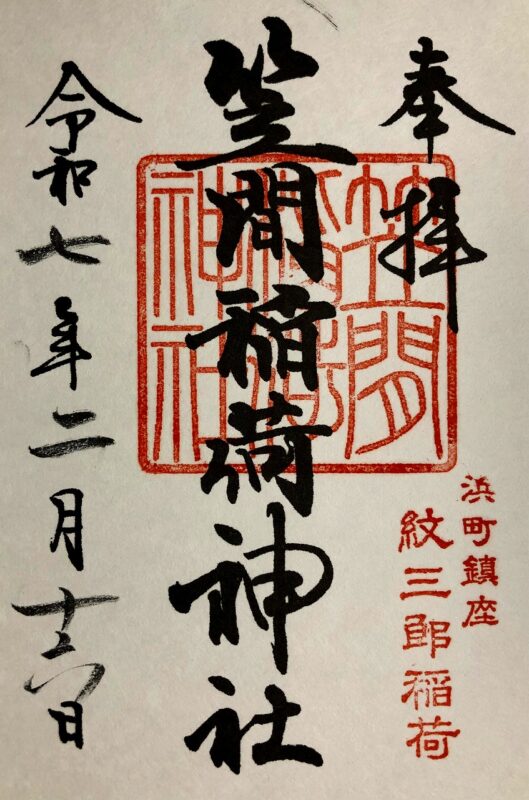 奉拝
浜町鎮座
紋三郎稲荷
笠間稲荷神社
笠間
稲荷
神社
令和七年二月十六日